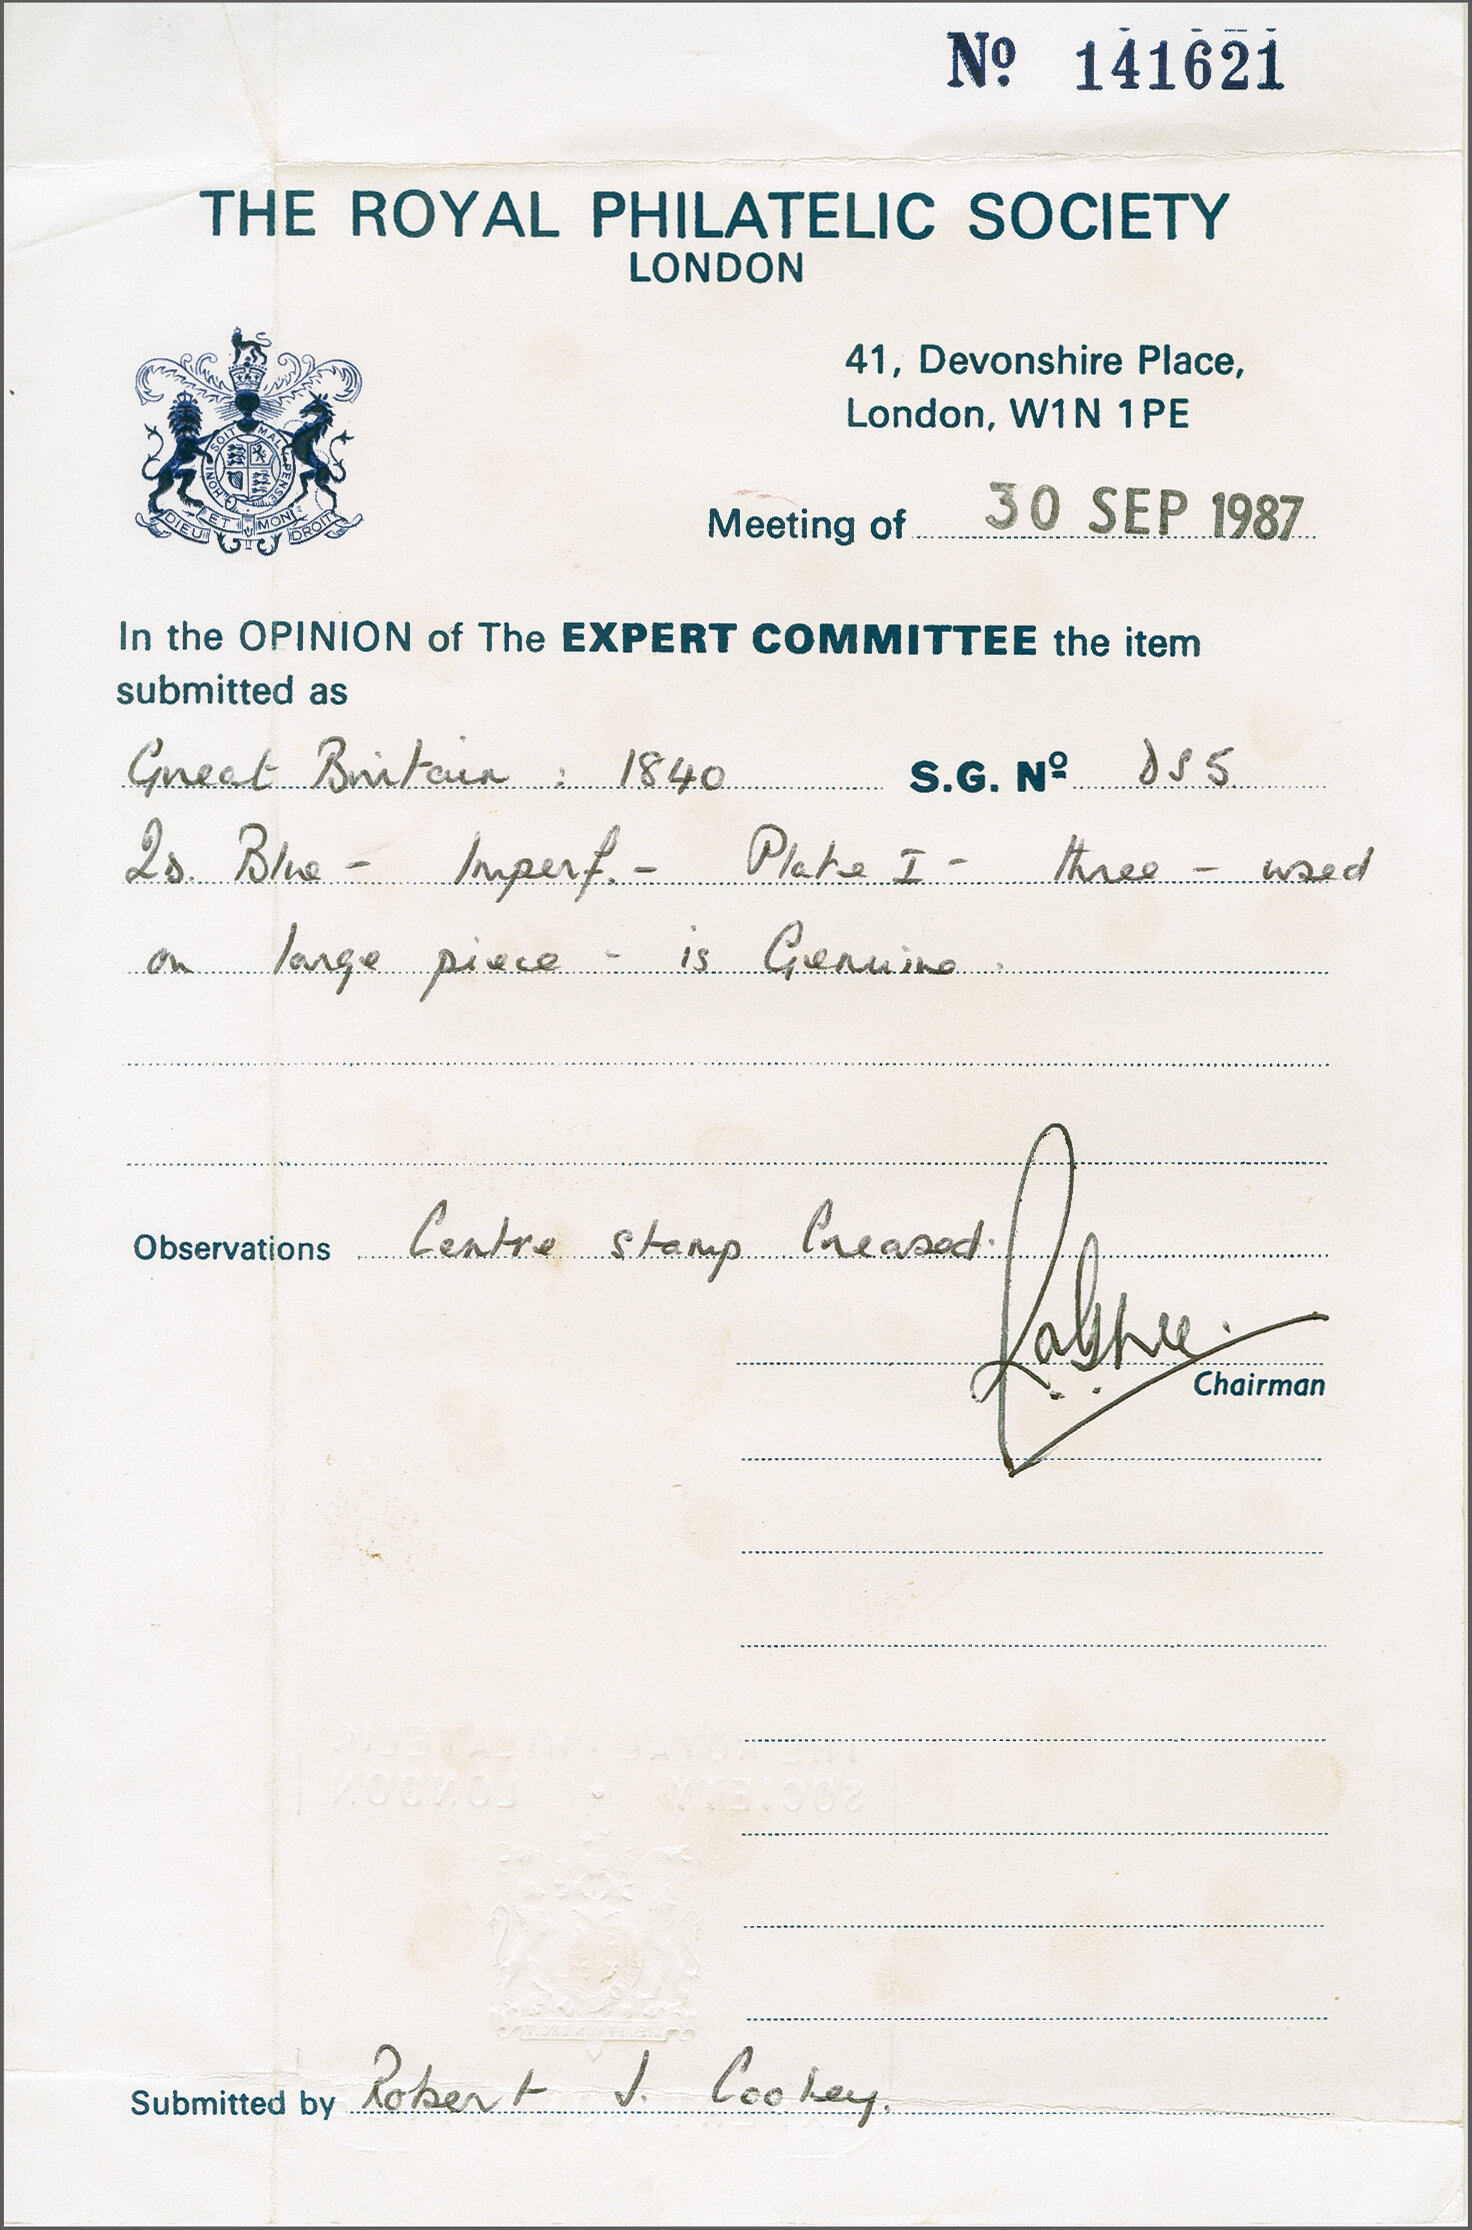 Nº 141621
THE ROYAL PHILATELIC SOCIETY
LONDON
HONI SOIT MAL PENSE
DIEU ET MON DROIT
41, Devonshire Place,
London, W1N 1PE
Meeting of 30 SEP 1987
In the OPINION of The EXPERT COMMITTEE the item
submitted as
Great Britain : 1840 S.G. Nº DS5
2D. Blue - Imperf. - Plate I - three - used
on large piece - is Genuine.
Observations Centre stamp Creased.
Chairman
THE ROYAL PHILATELIC
SOCIETY • LONDON
Submitted by Robert J. Cooley.